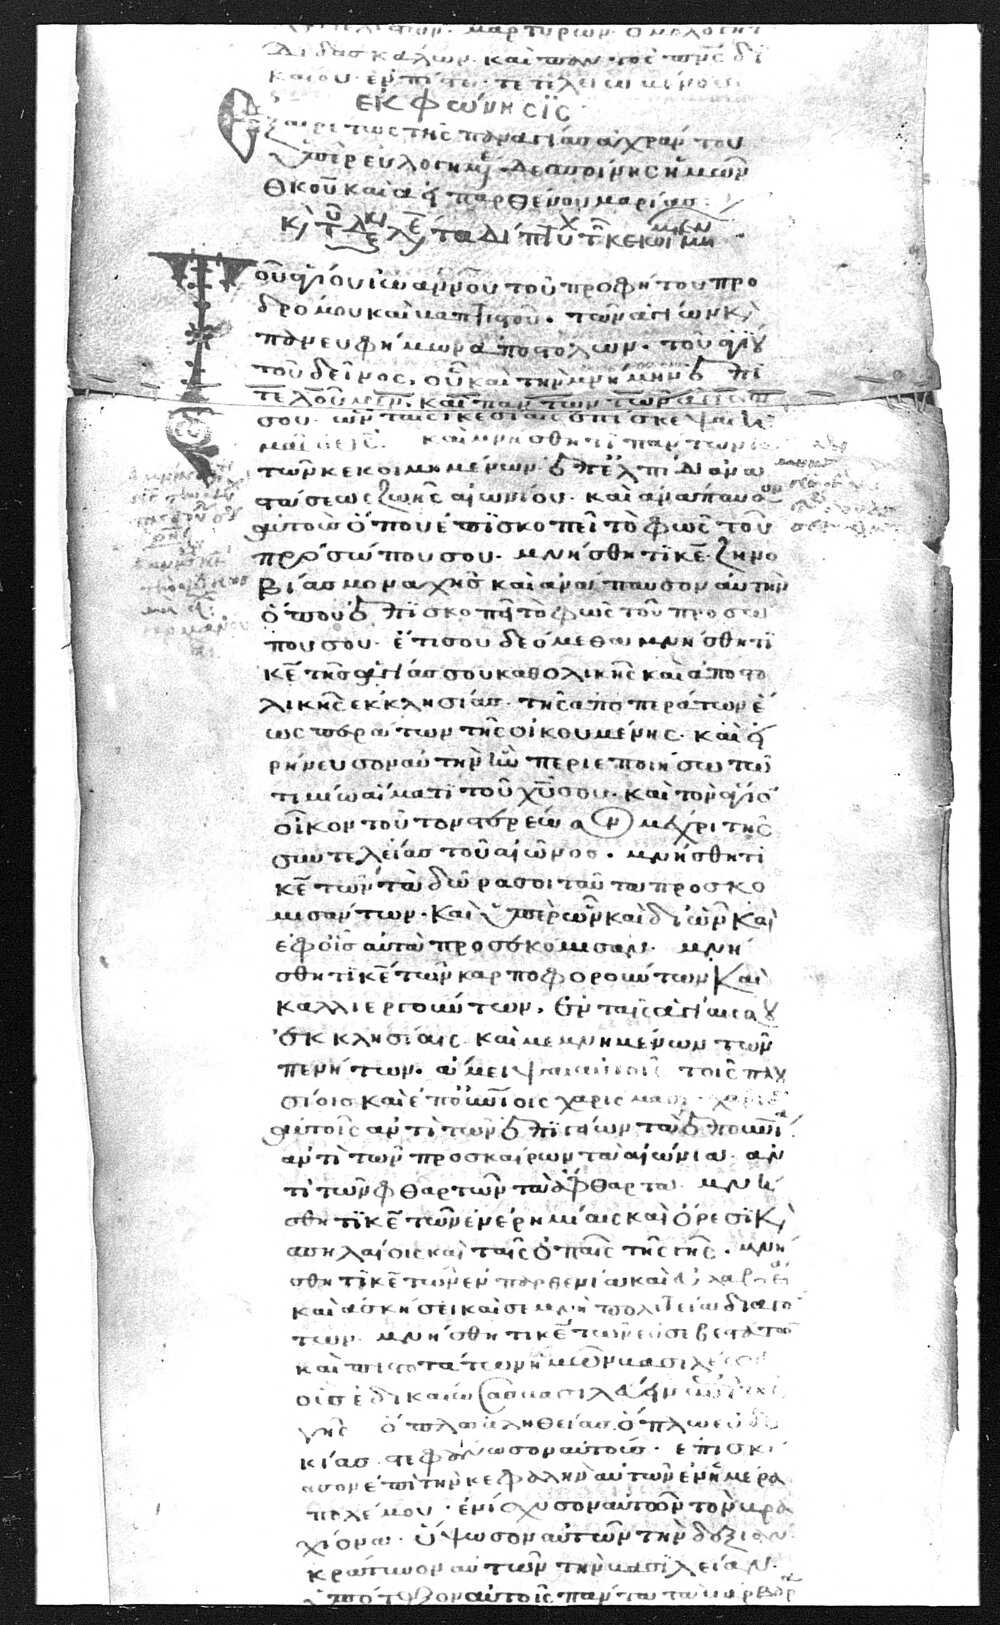 διδασκάλων. καὶ παντὸς πν(εύματο)ς δι
καίου ἐν πίστει τετελειωμένου
ἐκφώνησις
Ἐξαιρέτως τῆς παναγίας ἀχράντου
ὑπερευλογημένης δεσποίνης ἡμῶν
θκου καὶ ἀειπαρθένου μαρίας:
τὰ δίπτυχα τῶν κεκοιμημένων
Τοῦ ἁγίου ἰωάννου τοῦ προφήτου προ
δρόμου καὶ βαπτιστοῦ. τῶν ἁγίων κ(αὶ)
πανευφήμων ἀποστόλων. τοῦ ἁγίου
τοῦ δεῖνος, οὗ καὶ τὴν μνήμην ἐπι
τελοῦμεν. καὶ πάντων τῶν ἁγίων
σου. ὧν ταῖς ἱκεσίαις ἐπίσκεψαι ἡ
μᾶς ὁ θς. καὶ μνήσθητι πάντων
τῶν κεκοιμημένων ἐπ' ἐλπίδι ἀνα
στάσεως ζωῆς αἰωνίου. καὶ ἀνάπαυσον
αὐτοὺς ὅπου ἐπισκοπεῖ τὸ φῶς τοῦ
προσώπου σου. μνήσθητι κε ζηνο
βίας μοναχῆς καὶ ἀνάπαυσον αὐτὴν
ὅπου ἐπισκοπεῖ τὸ φῶς τοῦ προσώ
που σου. ἔτι σου δεόμεθα μνήσθητι
κε τῆς ἁγίας σου καθολικῆς καὶ ἀποστο
λικῆς ἐκκλησίας. τῆς ἀπὸ περάτων ἕ
ως περάτων τῆς οἰκουμένης. καὶ εἰ
ρήνευσον αὐτὴν ἣν περιεποιήσω τῶ
τιμίω αἵματι τοῦ χυ σου. καὶ τὸν ἅγιον
οἶκον τοῦτον στερέωσον μέχρι τῆς
συντελείας τοῦ αἰῶνος. μνήσθητι
κε τῶν τὰ δῶρά σοι ταῦτα προσκο
μισάντων. καὶ ὑπὲρ ὧν καὶ δι' ὧν καὶ
ἐφ' οἷς αὐτὰ προσεκόμισαν. μνή
σθητι κε τῶν καρποφορούντων καὶ
καλλιεργούντων. ἐν ταῖς ἁγίαις σου
ἐκκλησίαις καὶ μεμνημένων τῶν
πενήτων. ἄμειψαι αὐτοὺς τοῖς πλου
σίοις καὶ ἐπουνίοις χαρίσμασι. χάρισαι
αὐτοῖς ἀντὶ τῶν ἐπιγείων τὰ ἐπουνια.
ἀντὶ τῶν προσκαίρων τὰ αἰώνια. ἀν
τὶ τῶν φθαρτῶν τὰ ἄφθαρτα. μνή
σθητι κε τῶν ἐν ἐρημίαις καὶ ὄρεσι κ(αὶ)
σπηλαίοις καὶ ταῖς ὀπαῖς τῆς γῆς. μνή
σθητι κε τῶν ἐν παρθενία καὶ εὐλαβεία
καὶ ἀσκήσει καὶ σεμνῆ πολιτεία διαγόν
των. μνήσθητι κε τῶν εὐσεβεστάτων
καὶ πιστοτάτων ἡμῶν βασιλέων
οὓς ἐδικαίωσας βασιλεύειν ἐπὶ τῆς
γῆς ὅπλω ἀληθείας ὅπλω εὐδο
κίας στεφάνωσον αὐτούς. ἐπισκί
ασον ἐπὶ τὴν κεφαλὴν αὐτῶν ἐν ἡμέρα
πολέμου. ἐνίσχυσον αὐτῶν τὸν βρα
χίονα. ὕψωσον αὐτῶν τὴν δεξιάν
κράτυνον αὐτῶν τὴν βασιλείαν.
ὑπόταξον αὐτοῖς πάντα τὰ βάρβαρα